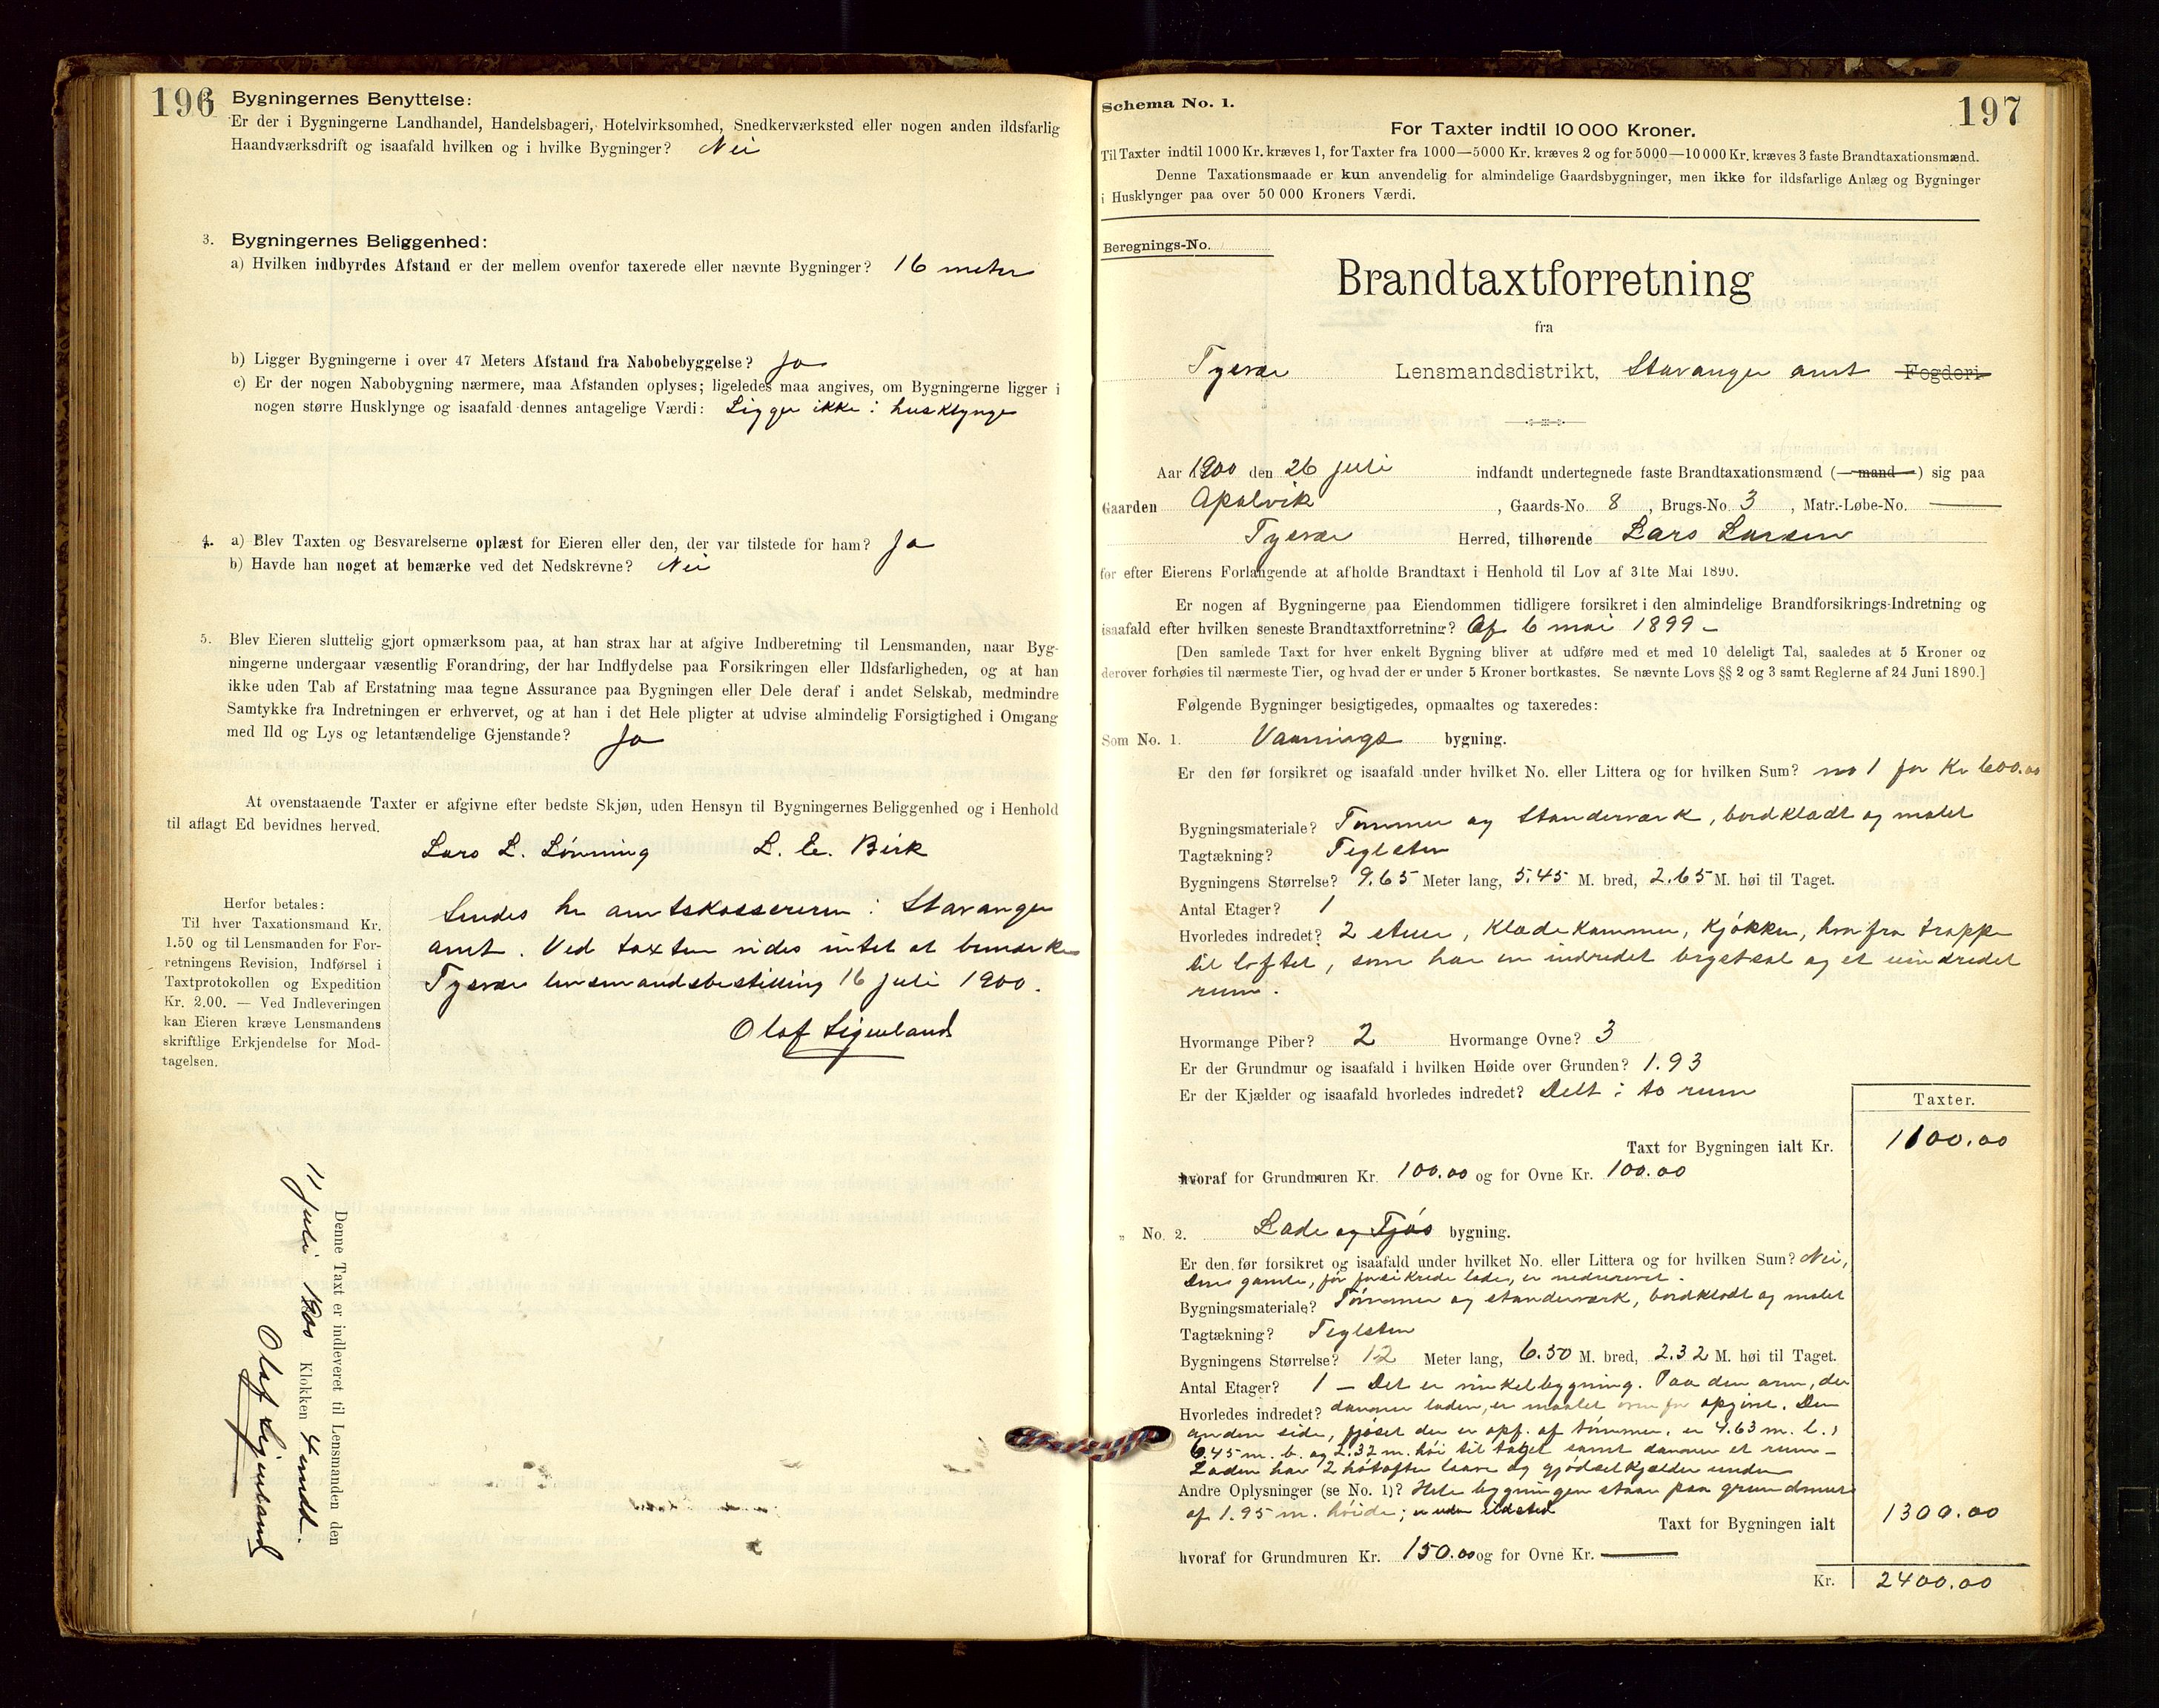 196
Bygningernes Benyttelse:
Er der i Bygningerne Landhandel, Handelsbageri, Hotelvirksomhed, Snedkerværksted eller nogen anden ildsfarlig
Haandværksdrift og isaafald hvilken og i hvilke Bygninger? Nei
3. Bygningernes Beliggenhed:
a) Hvilken indbyrdes Afstand er der mellem ovenfor taxerede eller nævnte Bygninger? 16 meter
b) Ligger Bygningerne i over 47 Meters Afstand fra Nabobebyggelse? Ja
c) Er der nogen Nabobygning nærmere, maa Afstanden oplyses; ligeledes maa angives, om Bygningerne ligger i
nogen større Husklynge og isaafald dennes antagelige Værdi: Ligger ikke i husklynge
4. a) Blev Taxten og Besvarelserne oplæst for Eieren eller den, der var tilstede for ham? Ja
b) Havde han noget at bemærke ved det Nedskrevne? Nei
5. Blev Eieren sluttelig gjort opmærksom paa, at han strax har at afgive Indberetning til Lensmanden, naar Byg-
ningerne undergaar væsentlig Forandring, der har Indflydelse paa Forsikringen eller Ildsfarligheden, og at han
ikke uden Tab af Erstatning maa tegne Assurance paa Bygningen eller Dele deraf i andet Selskab, medmindre
Samtykke fra Indretningen er erhvervet, og at han i det Hele pligter at udvise almindelig Forsigtighed i Omgang
med Ild og Lys og letantændelige Gjenstande? Ja
At ovenstaaende Taxter er afgivne efter bedste Skjøn, uden Hensyn til Bygningernes Beliggenhed og i Henhold
til aflagt Ed bevidnes herved.
Lars L. Lønning L. E. Birk
Herfor betales:
Til hver Taxationsmand Kr.
1.50 og til Lensmanden for For-
retningens Revision, Indførsel i
Taxtprotokollen og Expedition
Kr. 2.00. — Ved Indleveringen
kan Eieren kræve Lensmandens
skriftlige Erkjendelse for Mod-
tagelsen.
Sendes hr amtskassereren i Stavanger
amt. Ved taxten vides intet at bemærke
Tysvær lensmandsbestilling 16 juli 1900.
Olaf
Denne Taxt er indleveret til Lensmanden den
11 juli 1900 Klokken 4 emdd.
Olaf
Schema No. 1.
197
For Taxter indtil 10 000 Kroner.
Til Taxter indtil 1000 Kr. kræves 1, for Taxter fra 1000—5000 Kr. kræves 2 og for 5000—10 000 Kr. kræves 3 faste Brandtaxationsmænd.
Denne Taxationsmaade er kun anvendelig for almindelige Gaardsbygninger, men ikke for ildsfarlige Anlæg og Bygninger
i Husklynger paa over 50 000 Kroners Værdi.
Beregnings-No.
Brandtaxtforretning
fra
Tysvær Lensmandsdistrikt, Stavanger amt Fogderi
Aar 1900 den 26 juli indfandt undertegnede faste Brandtaxationsmænd (mand) sig paa
Gaarden Apalvik, Gaards-No. 8, Brugs-No. 3, Matr.-Løbe-No. —
Tysvær Herred, tilhørende Lars Larsen
for efter Eierens Forlangende at afholde Brandtaxt i Henhold til Lov af 31te Mai 1890.
Er nogen af Bygningerne paa Eiendommen tidligere forsikret i den almindelige Brandforsikrings-Indretning og
isaafald efter hvilken seneste Brandtaxtforretning? Af 6 mai 1899 —
[Den samlede Taxt for hver enkelt Bygning bliver at udføre med et med 10 deleligt Tal, saaledes at 5 Kroner og
derover forhøies til nærmeste Tier, og hvad der er under 5 Kroner bortkastes. Se nævnte Lovs §§ 2 og 3 samt Reglerne af 24 Juni 1890.]
Følgende Bygninger besigtigedes, opmaaltes og taxeredes:
Som No. 1. Vaanings bygning.
Er den før forsikret og isaafald under hvilket No. eller Littera og for hvilken Sum? no 1 for Kr 600.00
Bygningsmateriale? Tømmer og Standerværk, bordklædt og malet
Tagtækning? Teglsten
Bygningens Størrelse? 9.65 Meter lang, 5.45 M. bred, 2.65 M. høi til Taget.
Antal Etager? 1
Hvorledes indredet? 2 stuer, Klædekammer, Kjøkken, hvorfra trappe
til loftet, som har en indredet brystsal og et uindredet
rum.
Hvormange Piber? 2 Hvormange Ovne? 3
Er der Grundmur og isaafald i hvilken Høide over Grunden? 1.93
Er der Kjælder og isaafald hvorledes indredet? Delt i to rum
Taxter.
Taxt for Bygningen ialt Kr. 1100.00
hvoraf for Grundmuren Kr. 100.00 og for Ovne Kr. 100.00
„ No. 2. Lade og Fjøs bygning.
Er den før forsikret og isaafald under hvilket No. eller Littera og for hvilken Sum? Nei,
Den gamle, før forsikrede lade, er nedrevet.
Bygningsmateriale? Tømmer og standerværk, bordklædt og malet
Tagtækning? Teglsten
Bygningens Størrelse? 12 Meter lang, 6.50 M. bred, 2.32 M. høi til Taget.
Antal Etager? 1 — Det er vinkelbygning. Paa den arm, der
Hvorledes indredet? danner laden, er maalet ovenfor opgivet. Den
anden side, fjøset der er opf. af tømmer, er 4.63 m. l.,
6.45 m. b. og 2.32 m. høi til taget samt danner et rum —
Laden har 2 laave og gjødselkjelder under
Andre Oplysninger (se No. 1)? Hele bygningen staar paa grundmur
af 1.95 m. høide; er uden ildsted
Taxt for Bygningen ialt 1300.00
hvoraf for Grundmuren Kr. 150.00 og for Ovne Kr. —
Kr. 2400.00